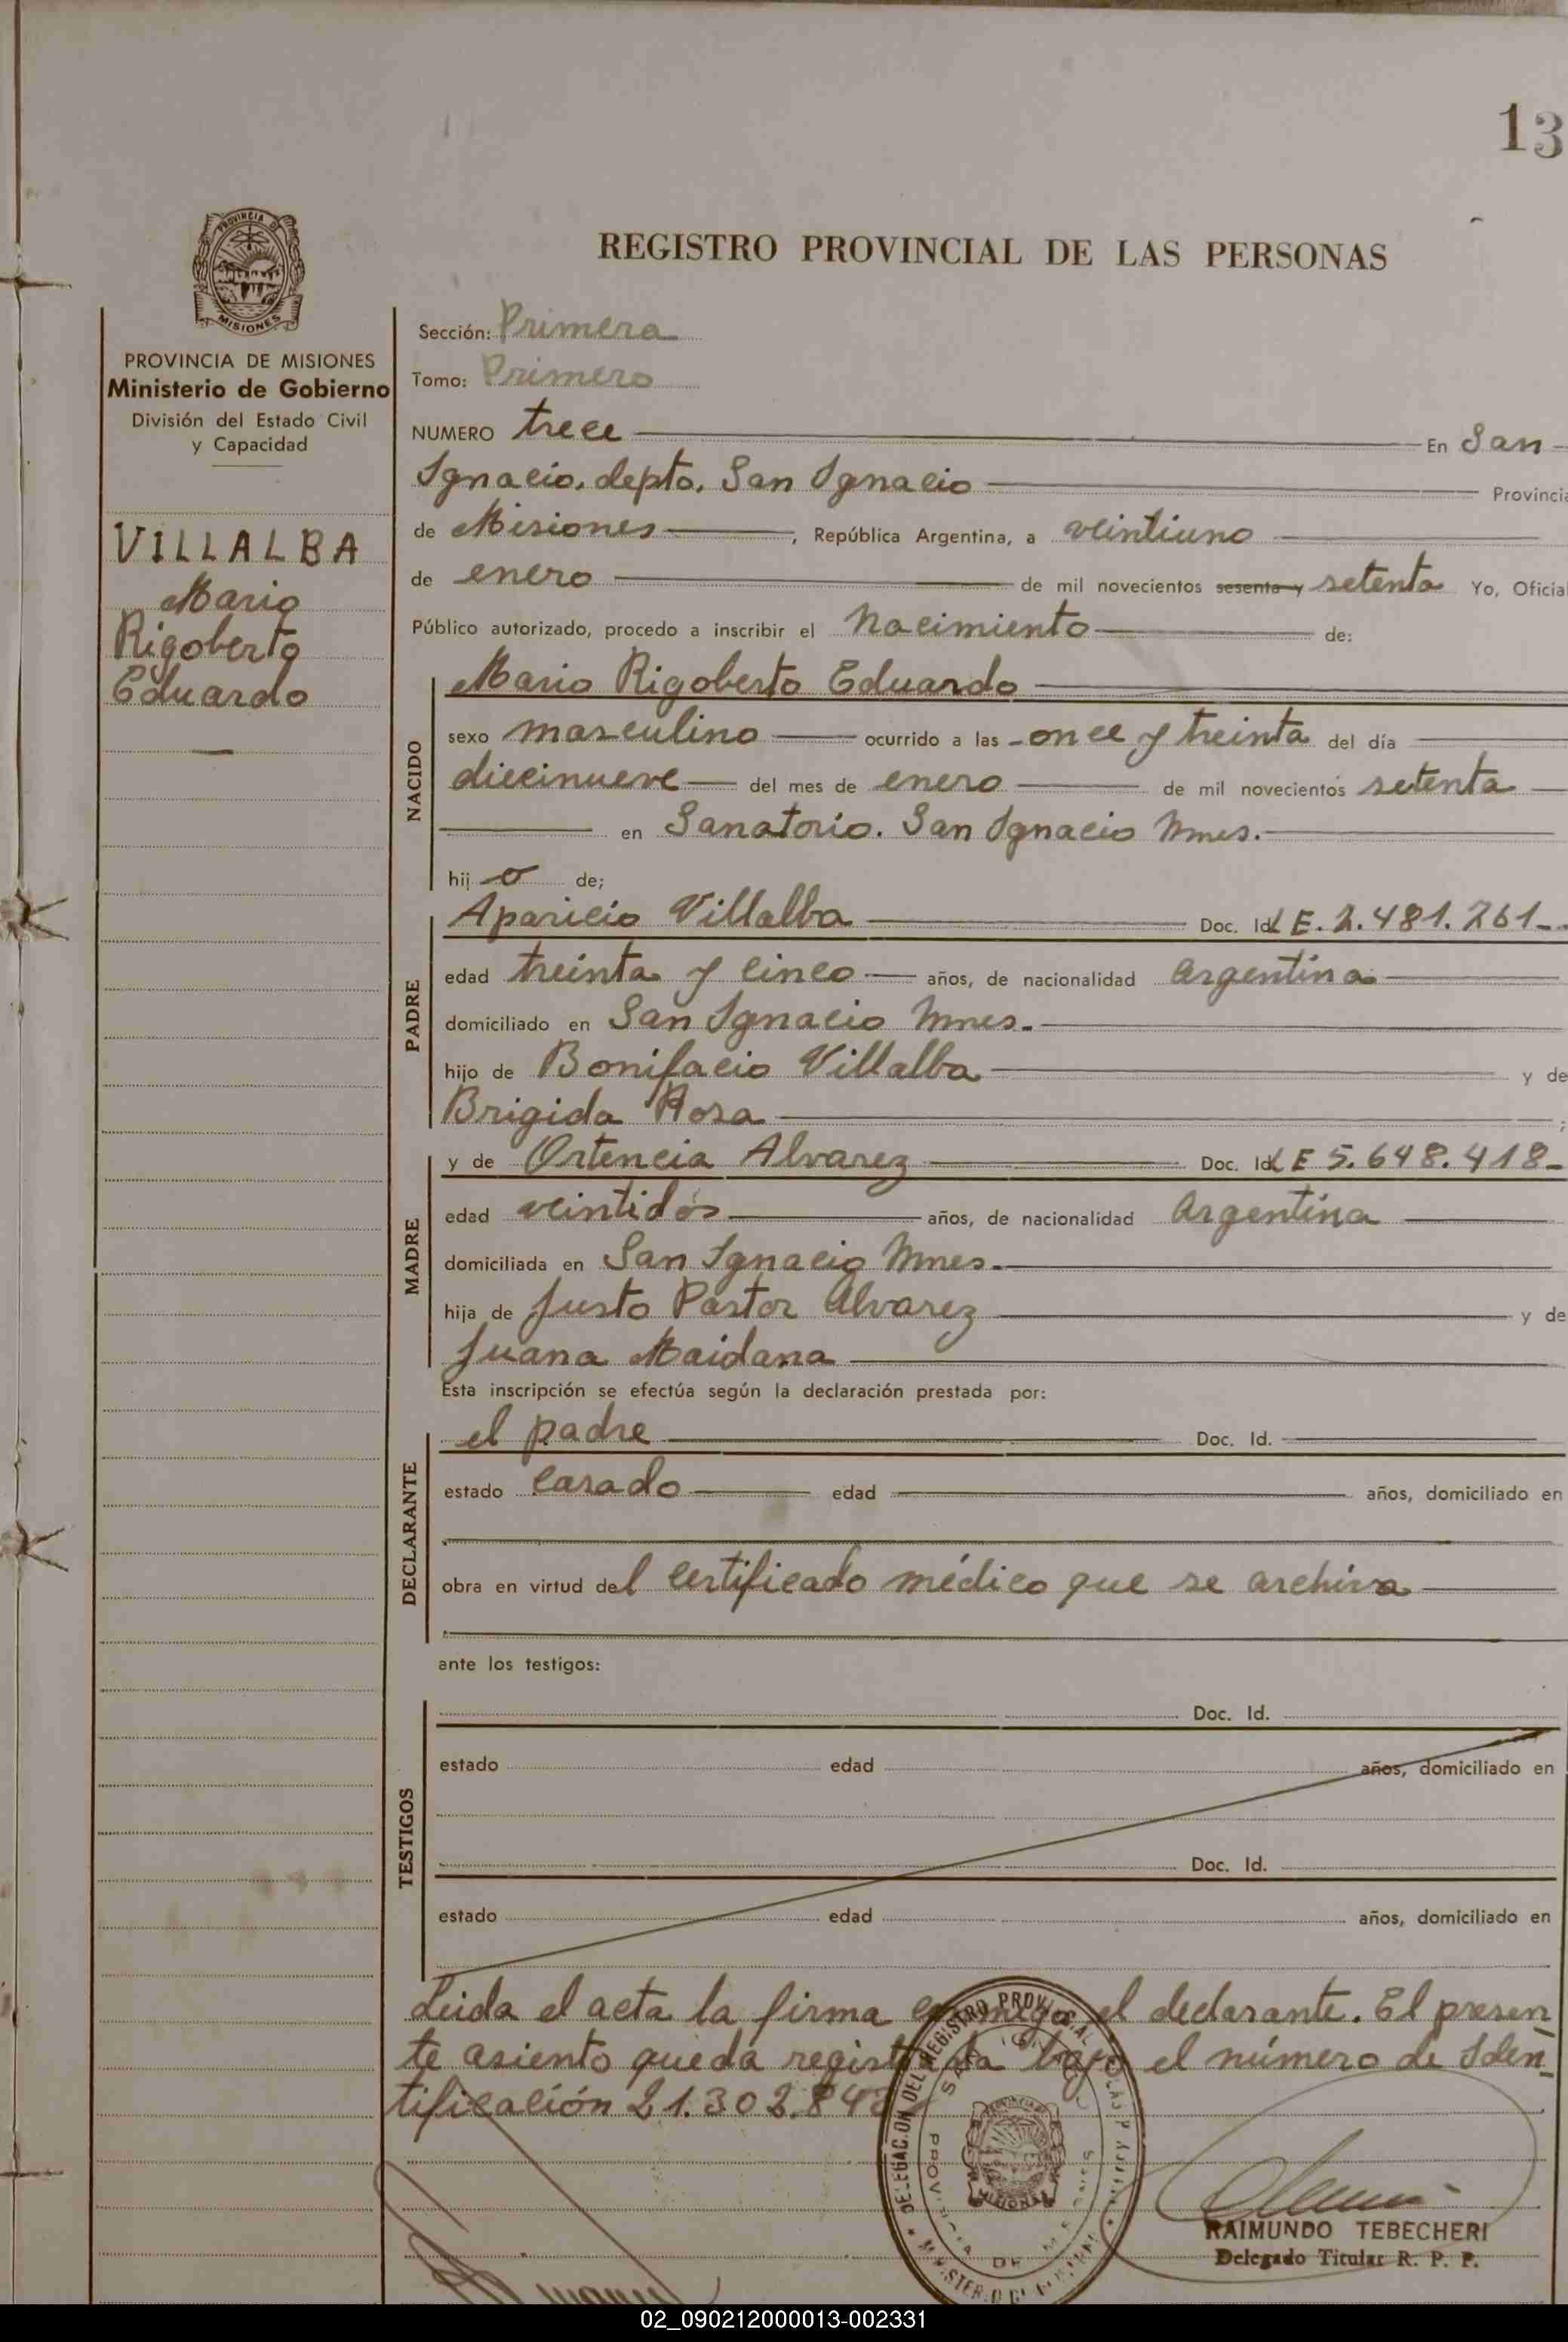 13
REGISTRO PROVINCIAL DE LAS PERSONAS
PROVINCIA DE
MISIONES
PROVINCIA DE MISIONES
Ministerio de Gobierno
División del Estado Civil
y Capacidad
VILLALBA
Mario
Rigoberto
Eduardo
Sección: Primera
Tomo: Primero
NUMERO trece En San
Ignacio, depto. San Ignacio Provincia
de Misiones, República Argentina, a veintiuno
de enero de mil novecientos sesenta y setenta Yo, Oficial
Público autorizado, procedo a inscribir el Nacimiento de:
NACIDO
Mario Rigoberto Eduardo
sexo masculino ocurrido a las once y treinta del día
diecinueve del mes de enero de mil novecientos setenta
en Sanatorio. San Ignacio Mnes.
hij o de;
PADRE
Aparicio Villalba Doc. Id. L E. 2.481.261
edad treinta y cinco años, de nacionalidad argentina
domiciliado en San Ignacio Mnes.
hijo de Bonifacio Villalba y de
Brigida Rosa ;
MADRE
y de Ortencia Alvarez Doc. Id. L E 5.648.418
edad veintidós años, de nacionalidad argentina
domiciliada en San Ignacio Mnes.
hija de Justo Pastor Alvarez y de
Juana Maidana
Esta inscripción se efectúa según la declaración prestada por:
DECLARANTE
el padre Doc. Id.
estado casado edad años, domiciliado en
obra en virtud del certificado médico que se archiva
ante los testigos:
TESTIGOS
Doc. Id.
estado edad años, domiciliado en
Doc. Id.
estado edad años, domiciliado en
Leida el acta la firma conmigo el declarante. El presen
te asiento queda registrada bajo el número de Iden
tificación 21.302.843
DELEGACION DEL REGISTRO PROVINCIAL DE LAS PERSONAS
SAN IGNACIO
PROVINCIA DE MISIONES
MINISTERIO DE GOBIERNO
RAIMUNDO TEBECHERI
Delegado Titular R. P. P.
02_090212000013-002331